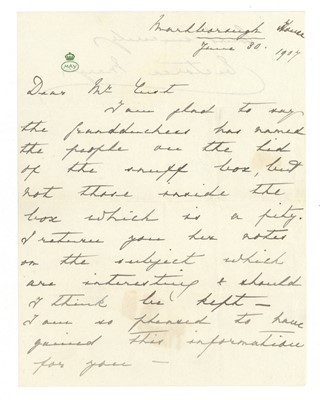 Marlborough House
June 30. 1907
MAY
Dear Mr Cust
I am glad to say
the Grandduchess has named
the people on the lid
of the snuff box, but
not those inside the
box which is a pity.
I return you her notes
on the subject which
are interesting & should
I think be kept —
I am so pleased to have
gained this information
for you —